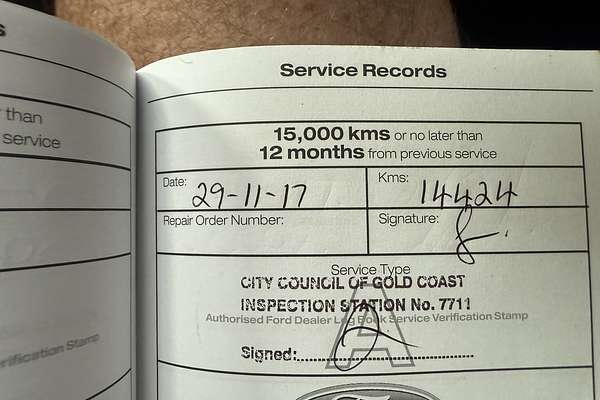 s
than
service
rification Stamp
Service Records
15,000 kms or no later than
12 months from previous service
Date: 29-11-17
Kms: 14424
Repair Order Number:
Signature:
Service Type
CITY COUNCIL OF GOLD COAST
INSPECTION STATION No. 7711
A
Authorised Ford Dealer Log Book Service Verification Stamp
Signed: